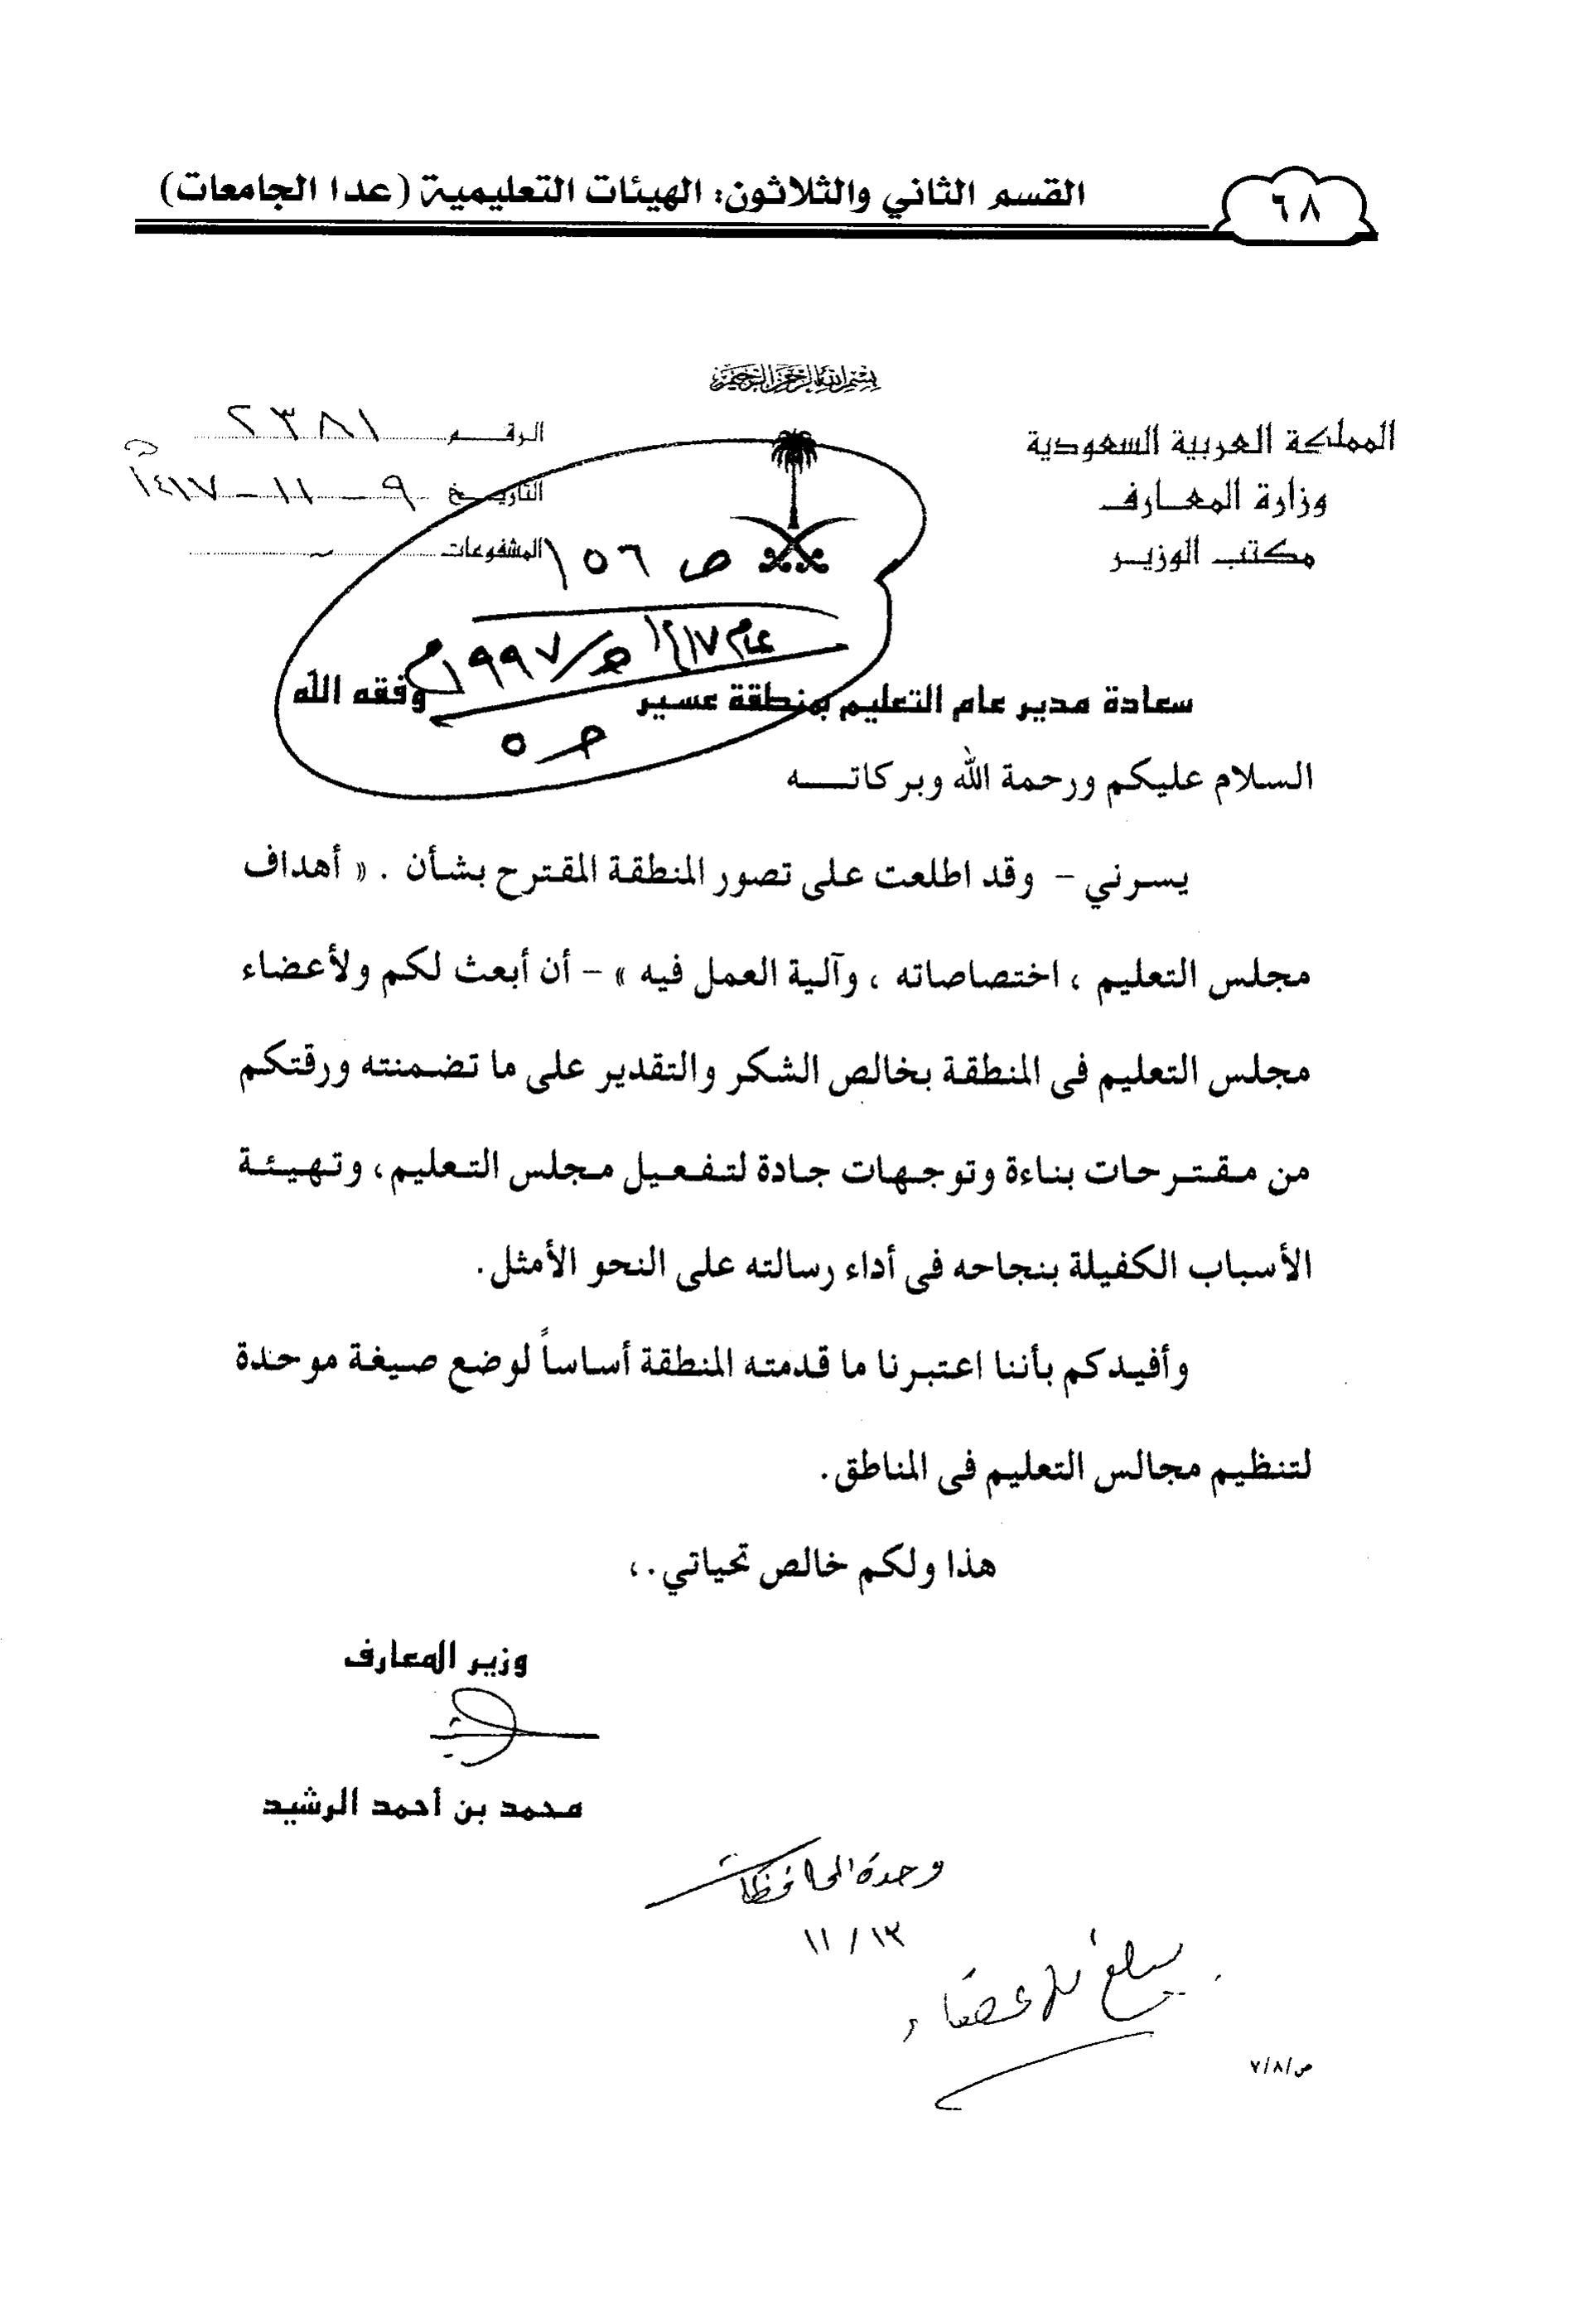 ٦٨
القسم الثاني والثلاثون: الهيئات التعليمية (عدا الجامعات)
بسم الله الرحمن الرحيم
المملكة العربية السعودية
وزارة المعارف
مكتب الوزير
الرقـــم ٢٣٨١
التاريـخ ٩ - ١١ - ١٤١٧هـ
المشفوعات
ص ١٥٦
عام ١٤١٧هـ/١٩٩٧م
سعادة مدير عام التعليم بمنطقة عسير وفقه الله
السلام عليكم ورحمة الله وبركاتـــه
يسرني – وقد اطلعت على تصور المنطقة المقترح بشأن . « أهداف
مجلس التعليم ، اختصاصاته ، وآلية العمل فيه » – أن أبعث لكم ولأعضاء
مجلس التعليم فى المنطقة بخالص الشكر والتقدير على ما تضمنته ورقتكم
من مقترحات بناءة وتوجهات جادة لتفعيل مجلس التعليم، وتهيئة
الأسباب الكفيلة بنجاحه فى أداء رسالته على النحو الأمثل.
وأفيدكم بأننا اعتبرنا ما قدمته المنطقة أساساً لوضع صيغة موحدة
لتنظيم مجالس التعليم فى المناطق.
هذا ولكم خالص تحياتي.،
وزير المعارف
محمد بن أحمد الرشيد
وحدة المحافظات
١١/١٣
يبلغ للأعضاء
ص/٧/٨